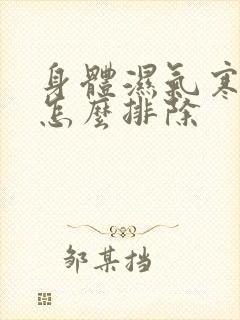 身體濕氣寒
怎麼排除
邹某挡